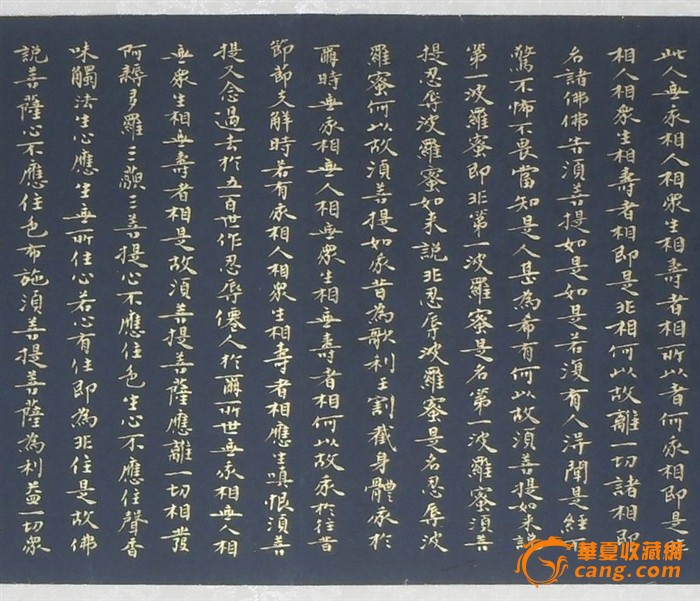 此人無我相人相眾生相壽者相所以者何我相即是非
相人相眾生相壽者相即是非相何以故離一切諸相即
名諸佛佛告須菩提如是如是若復有人得聞是經不
驚不怖不畏當知是人甚為希有何以故須菩提如來說
第一波羅蜜即非第一波羅蜜是名第一波羅蜜須菩
提忍辱波羅蜜如來說非忍辱波羅蜜是名忍辱波
羅蜜何以故須菩提如我昔為歌利王割截身體我於
爾時無我相無人相無眾生相無壽者相何以故我於往昔
節節支解時若有我相人相眾生相壽者相應生嗔恨須菩
提又念過去於五百世作忍辱僊人於爾所世無我相無人相
無眾生相無壽者相是故須菩提菩薩應離一切相發
阿耨多羅三藐三菩提心不應住色生心不應住聲香
味觸法生心應生無所住心若心有住即為非住是故佛
說菩薩心不應住色布施須菩提菩薩為利益一切眾
華夏收藏網
cang.com